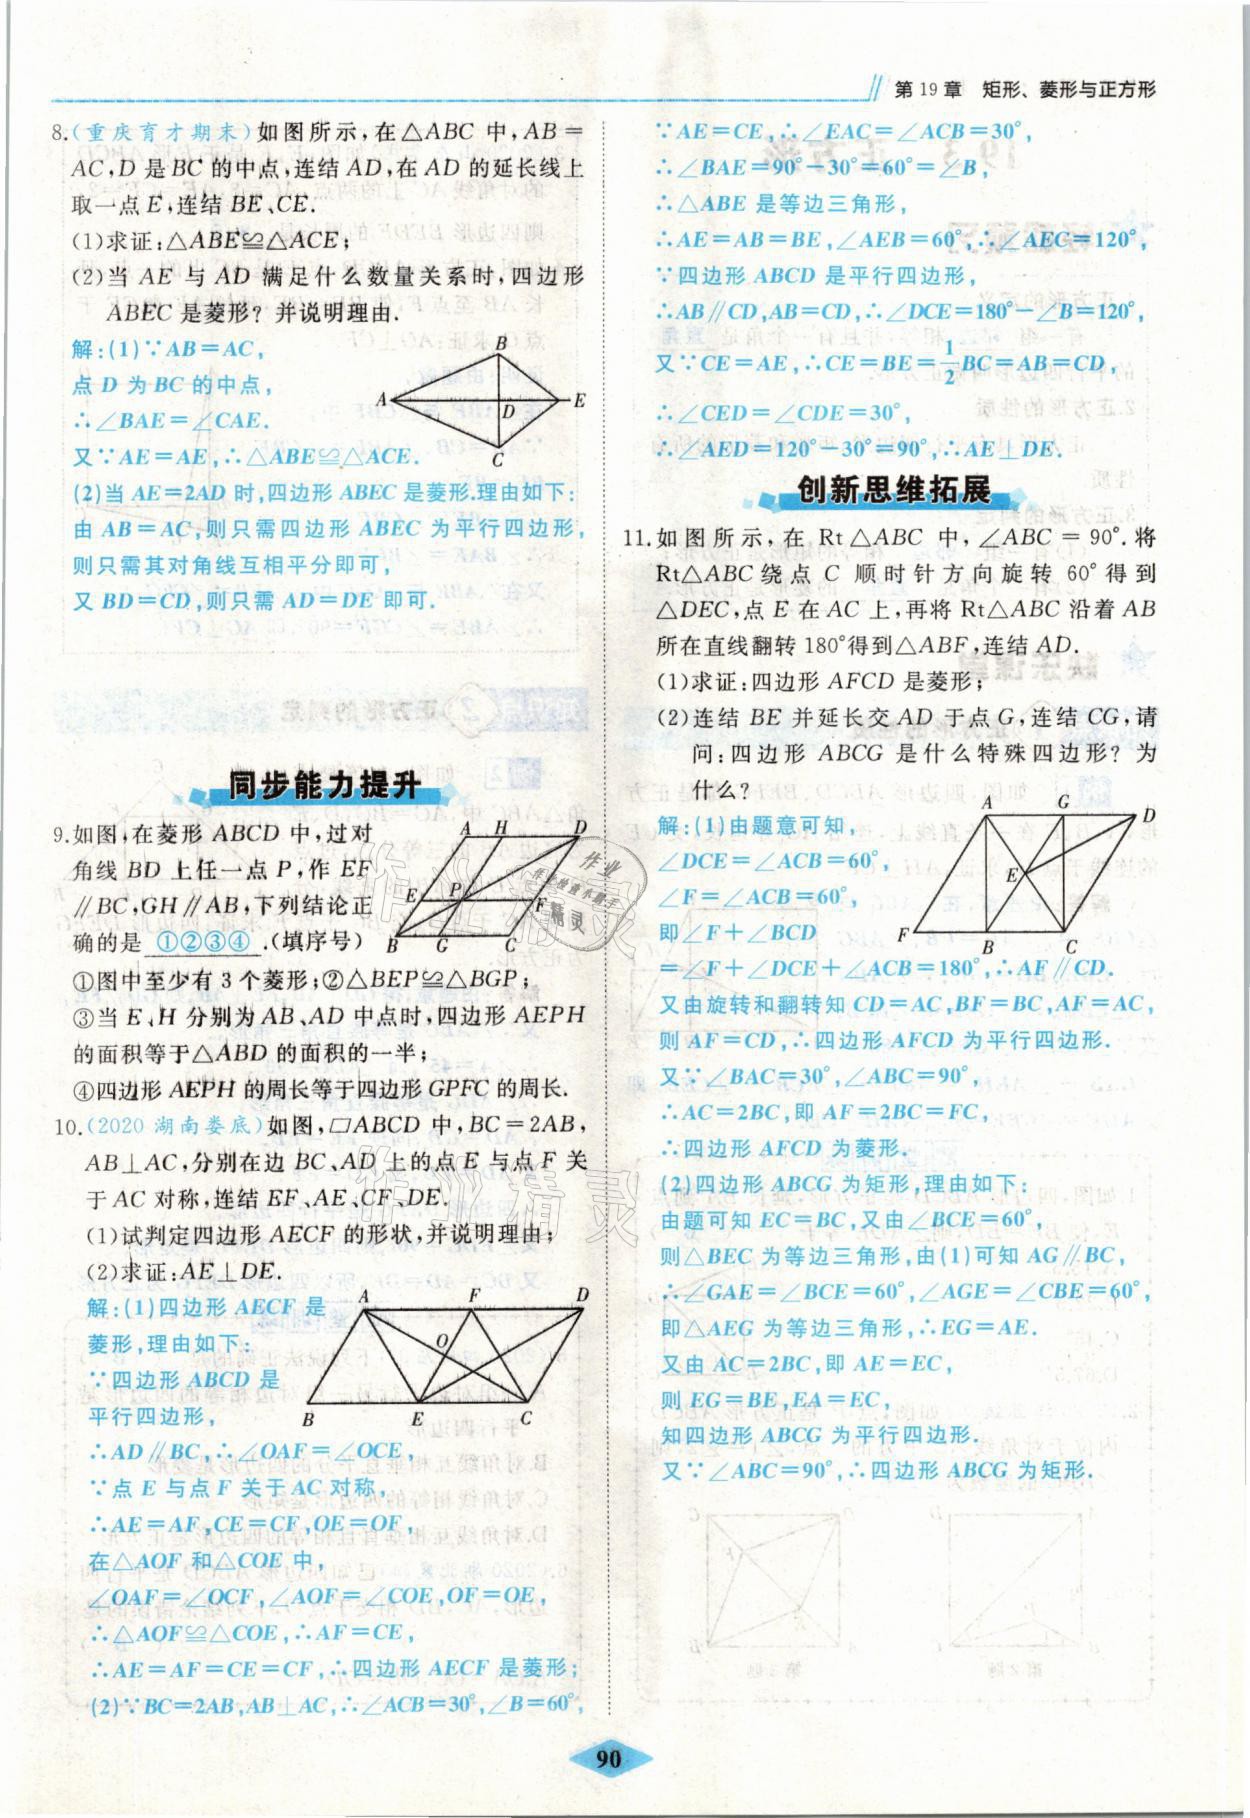 第19章 矩形、菱形与正方形
8.(重庆育才期末)如图所示,在△ABC中,AB=
AC,D是BC的中点,连结AD,在AD的延长线上
取一点E,连结BE、CE.
(1)求证:△ABE≌△ACE;
(2)当AE与AD满足什么数量关系时,四边形
ABEC是菱形?并说明理由.
解:(1)∵AB=AC,
点D为BC的中点,
∴∠BAE=∠CAE.
又∵AE=AE,∴△ABE≌△ACE.
B
A
D
E
C
(2)当AE=2AD时,四边形ABEC是菱形.理由如下:
由AB=AC,则只需四边形ABEC为平行四边形,
则只需其对角线互相平分即可,
又BD=CD,则只需AD=DE即可.
同步能力提升
9.如图,在菱形ABCD中,过对
角线BD上任一点P,作EF
∥BC,GH∥AB,下列结论正
确的是 ①②③④ .(填序号)
A H D
E P F
B G C
①图中至少有3个菱形;②△BEP≌△BGP;
③当E、H分别为AB、AD中点时,四边形AEPH
的面积等于△ABD的面积的一半;
④四边形AEPH的周长等于四边形GPFC的周长.
10.(2020湖南娄底)如图,▱ABCD中,BC=2AB,
AB⊥AC,分别在边BC、AD上的点E与点F关
于AC对称,连结EF、AE、CF、DE.
(1)试判定四边形AECF的形状,并说明理由;
(2)求证:AE⊥DE.
解:(1)四边形AECF是
菱形,理由如下:
∵四边形ABCD是
平行四边形,
A F D
O
B E C
∴AD∥BC,∴∠OAF=∠OCE,
∵点E与点F关于AC对称,
∴AE=AF,CE=CF,OE=OF,
在△AOF和△COE中,
∠OAF=∠OCF,∠AOF=∠COE,OF=OE,
∴△AOF≌△COE,∴AF=CE,
∴AE=AF=CE=CF,∴四边形AECF是菱形;
(2)∵BC=2AB,AB⊥AC,∴∠ACB=30°,∠B=60°,
∵AE=CE,∴∠EAC=∠ACB=30°,
∴∠BAE=90°-30°=60°=∠B,
∴△ABE是等边三角形,
∴AE=AB=BE,∠AEB=60°,∴∠AEC=120°,
∵四边形ABCD是平行四边形,
∴AB∥CD,AB=CD,∴∠DCE=180°-∠B=120°,
又∵CE=AE,∴CE=BE=1/2BC=AB=CD,
∴∠CED=∠CDE=30°,
∴∠AED=120°-30°=90°,∴AE⊥DE.
创新思维拓展
11.如图所示,在Rt△ABC中,∠ABC=90°.将
Rt△ABC绕点C顺时针方向旋转60°得到
△DEC,点E在AC上,再将Rt△ABC沿着AB
所在直线翻转180°得到△ABF,连结AD.
(1)求证:四边形AFCD是菱形;
(2)连结BE并延长交AD于点G,连结CG,请
问:四边形ABCG是什么特殊四边形?为
什么?
解:(1)由题意可知,
∠DCE=∠ACB=60°,
∠F=∠ACB=60°,
即∠F+∠BCD
=∠F+∠DCE+∠ACB=180°,∴AF∥CD.
A G D
E
F B C
又由旋转和翻转知CD=AC,BF=BC,AF=AC,
则AF=CD,∴四边形AFCD为平行四边形.
又∵∠BAC=30°,∠ABC=90°,
∴AC=2BC,即AF=2BC=FC,
∴四边形AFCD为菱形.
(2)四边形ABCG为矩形,理由如下:
由题可知EC=BC,又由∠BCE=60°,
则△BEC为等边三角形,由(1)可知AG∥BC,
∴∠GAE=∠BCE=60°,∠AGE=∠CBE=60°,
即△AEG为等边三角形,∴EG=AE.
又由AC=2BC,即AE=EC,
则EG=BE,EA=EC,
知四边形ABCG为平行四边形.
又∵∠ABC=90°,∴四边形ABCG为矩形.
90